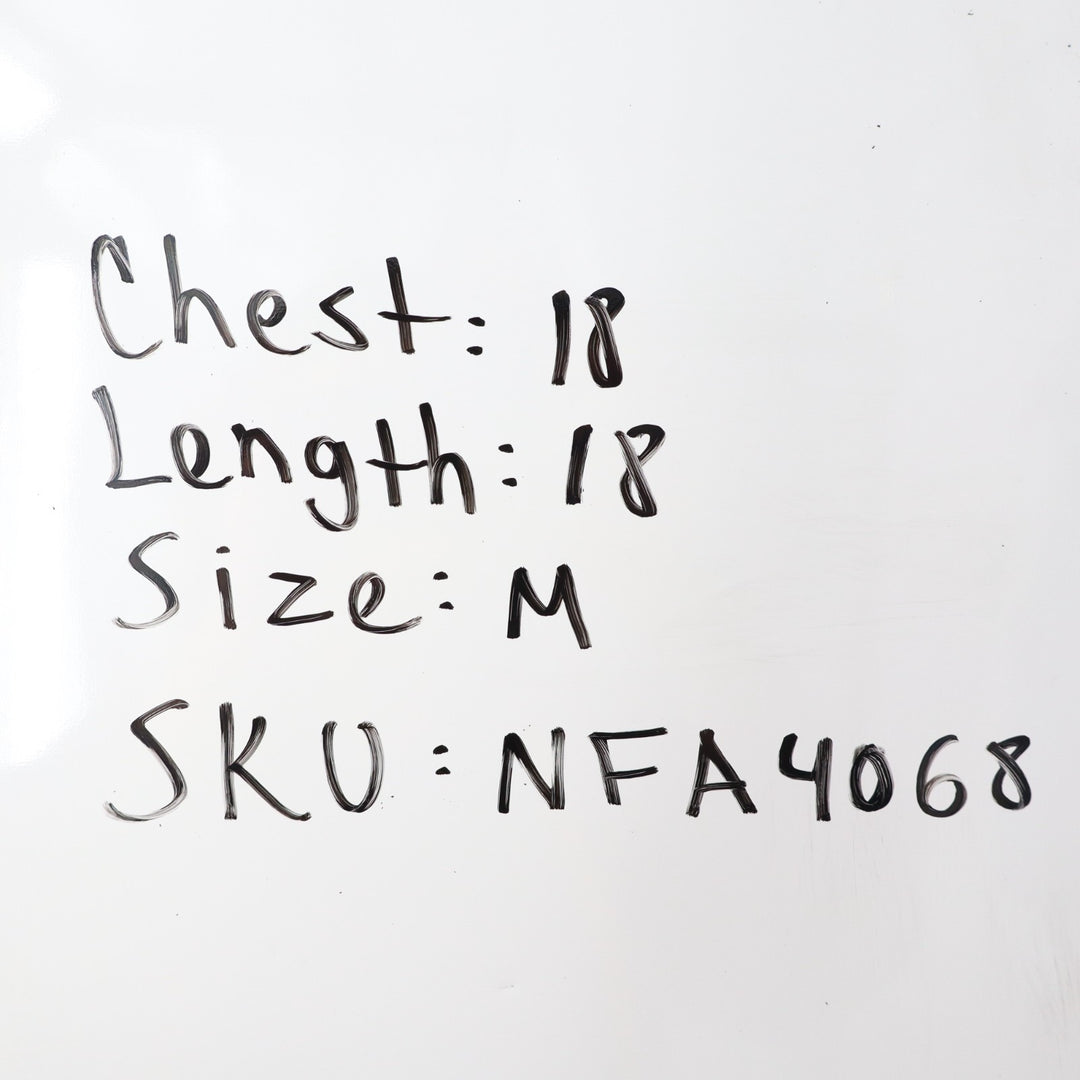 Chest: 18
Length: 18
Size: M
SKU: NFA4068